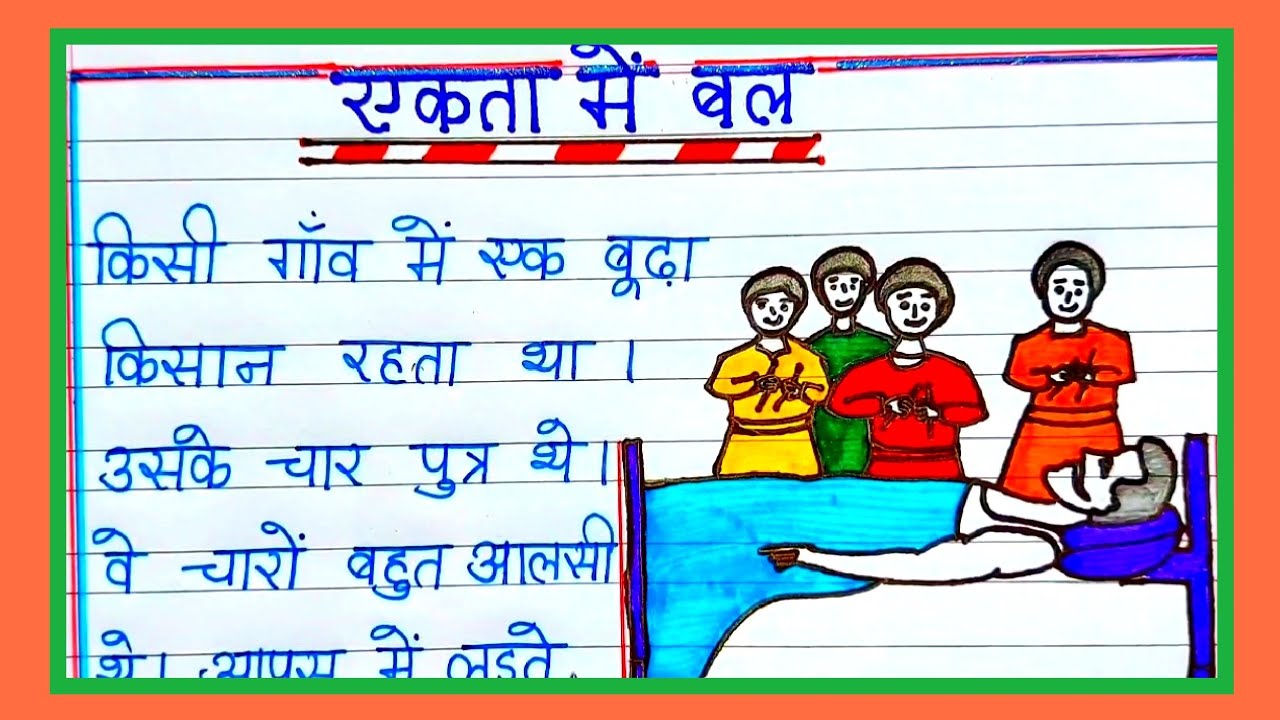 एकता में बल
किसी गाँव में एक बूढ़ा
किसान रहता था।
उसके चार पुत्र थे।
वे चारों बहुत आलसी
थे। आपस में लड़ते